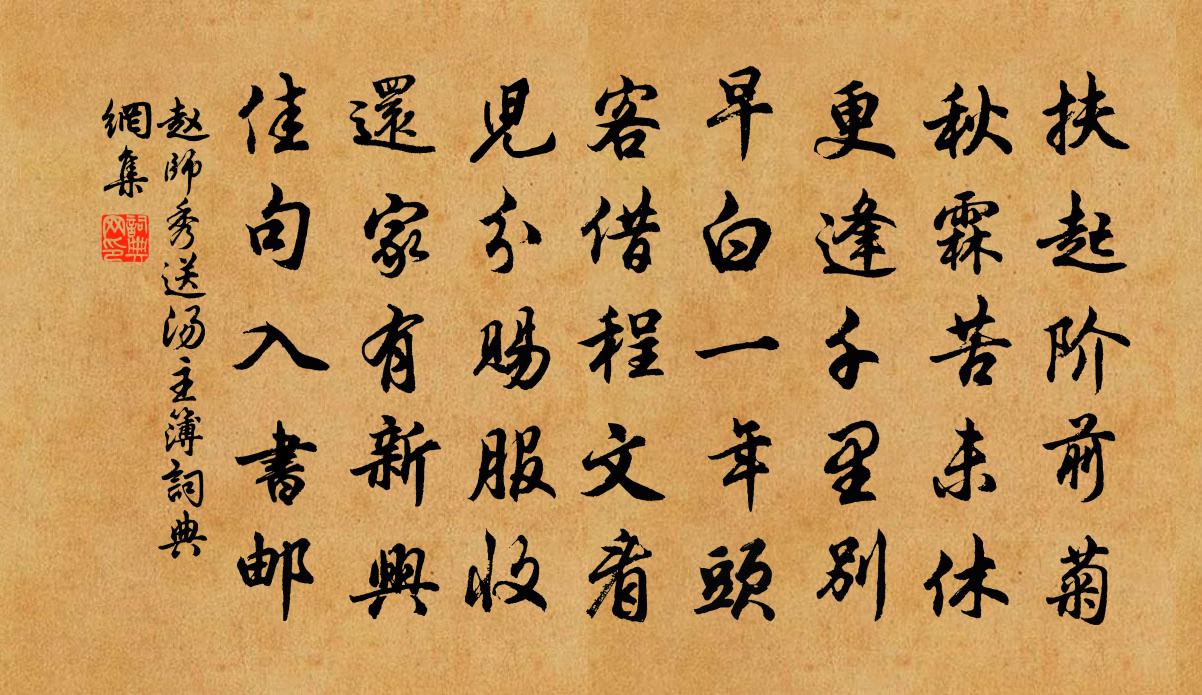 扶起阶前菊
秋霖苦未休
更逢千里别
早白一年頭
客借程文看
児分賜服收
還家有新興
佳句入書邮
赵師秀送汤主簿詞典
網集
詞典
网印